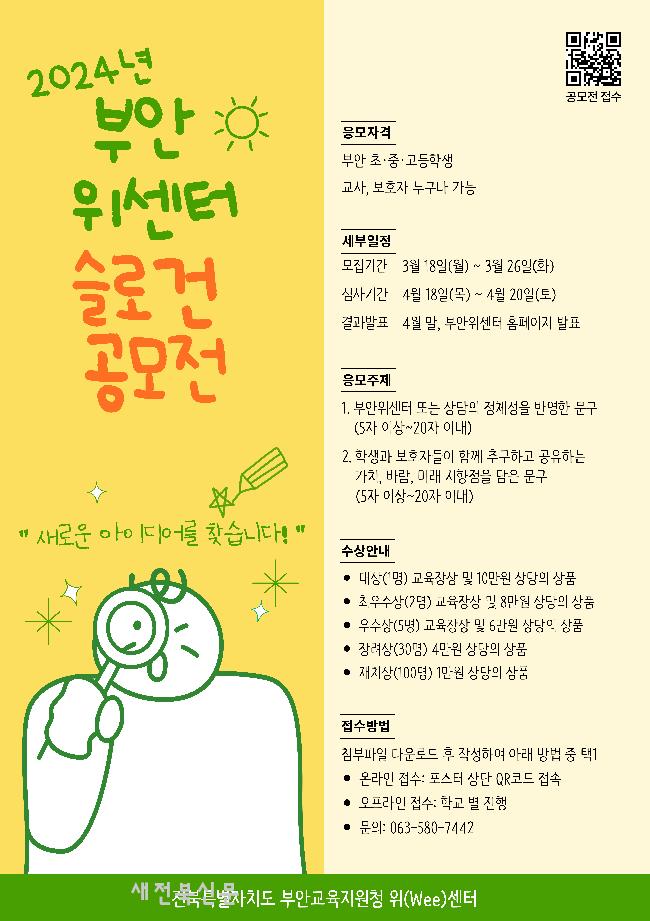 2024년
부안
위센터
슬로건
공모전
" 새로운 아이디어를 찾습니다! "
공모전 접수
응모자격
부안 초·중·고등학생
교사, 보호자 누구나 가능
세부일정
모집기간 3월 18일(월) ~ 3월 26일(화)
심사기간 4월 18일(목) ~ 4월 20일(토)
결과발표 4월 말, 부안위센터 홈페이지 발표
응모주제
1. 부안위센터 또는 상담의 정체성을 반영한 문구
(5자 이상~20자 이내)
2. 학생과 보호자들이 함께 추구하고 공유하는
가치, 바람, 미래 지향점을 담은 문구
(5자 이상~20자 이내)
수상안내
• 대상(1명) 교육장상 및 10만원 상당의 상품
• 최우수상(2명) 교육장상 및 8만원 상당의 상품
• 우수상(5명) 교육장상 및 6만원 상당의 상품
• 장려상(30명) 4만원 상당의 상품
• 재치상(100명) 1만원 상당의 상품
접수방법
첨부파일 다운로드 후 작성하여 아래 방법 중 택1
• 온라인 접수: 포스터 상단 QR코드 접속
• 오프라인 접수: 학교 별 진행
• 문의: 063-580-7442
새전북신문
전북특별자치도 부안교육지원청 위(Wee)센터